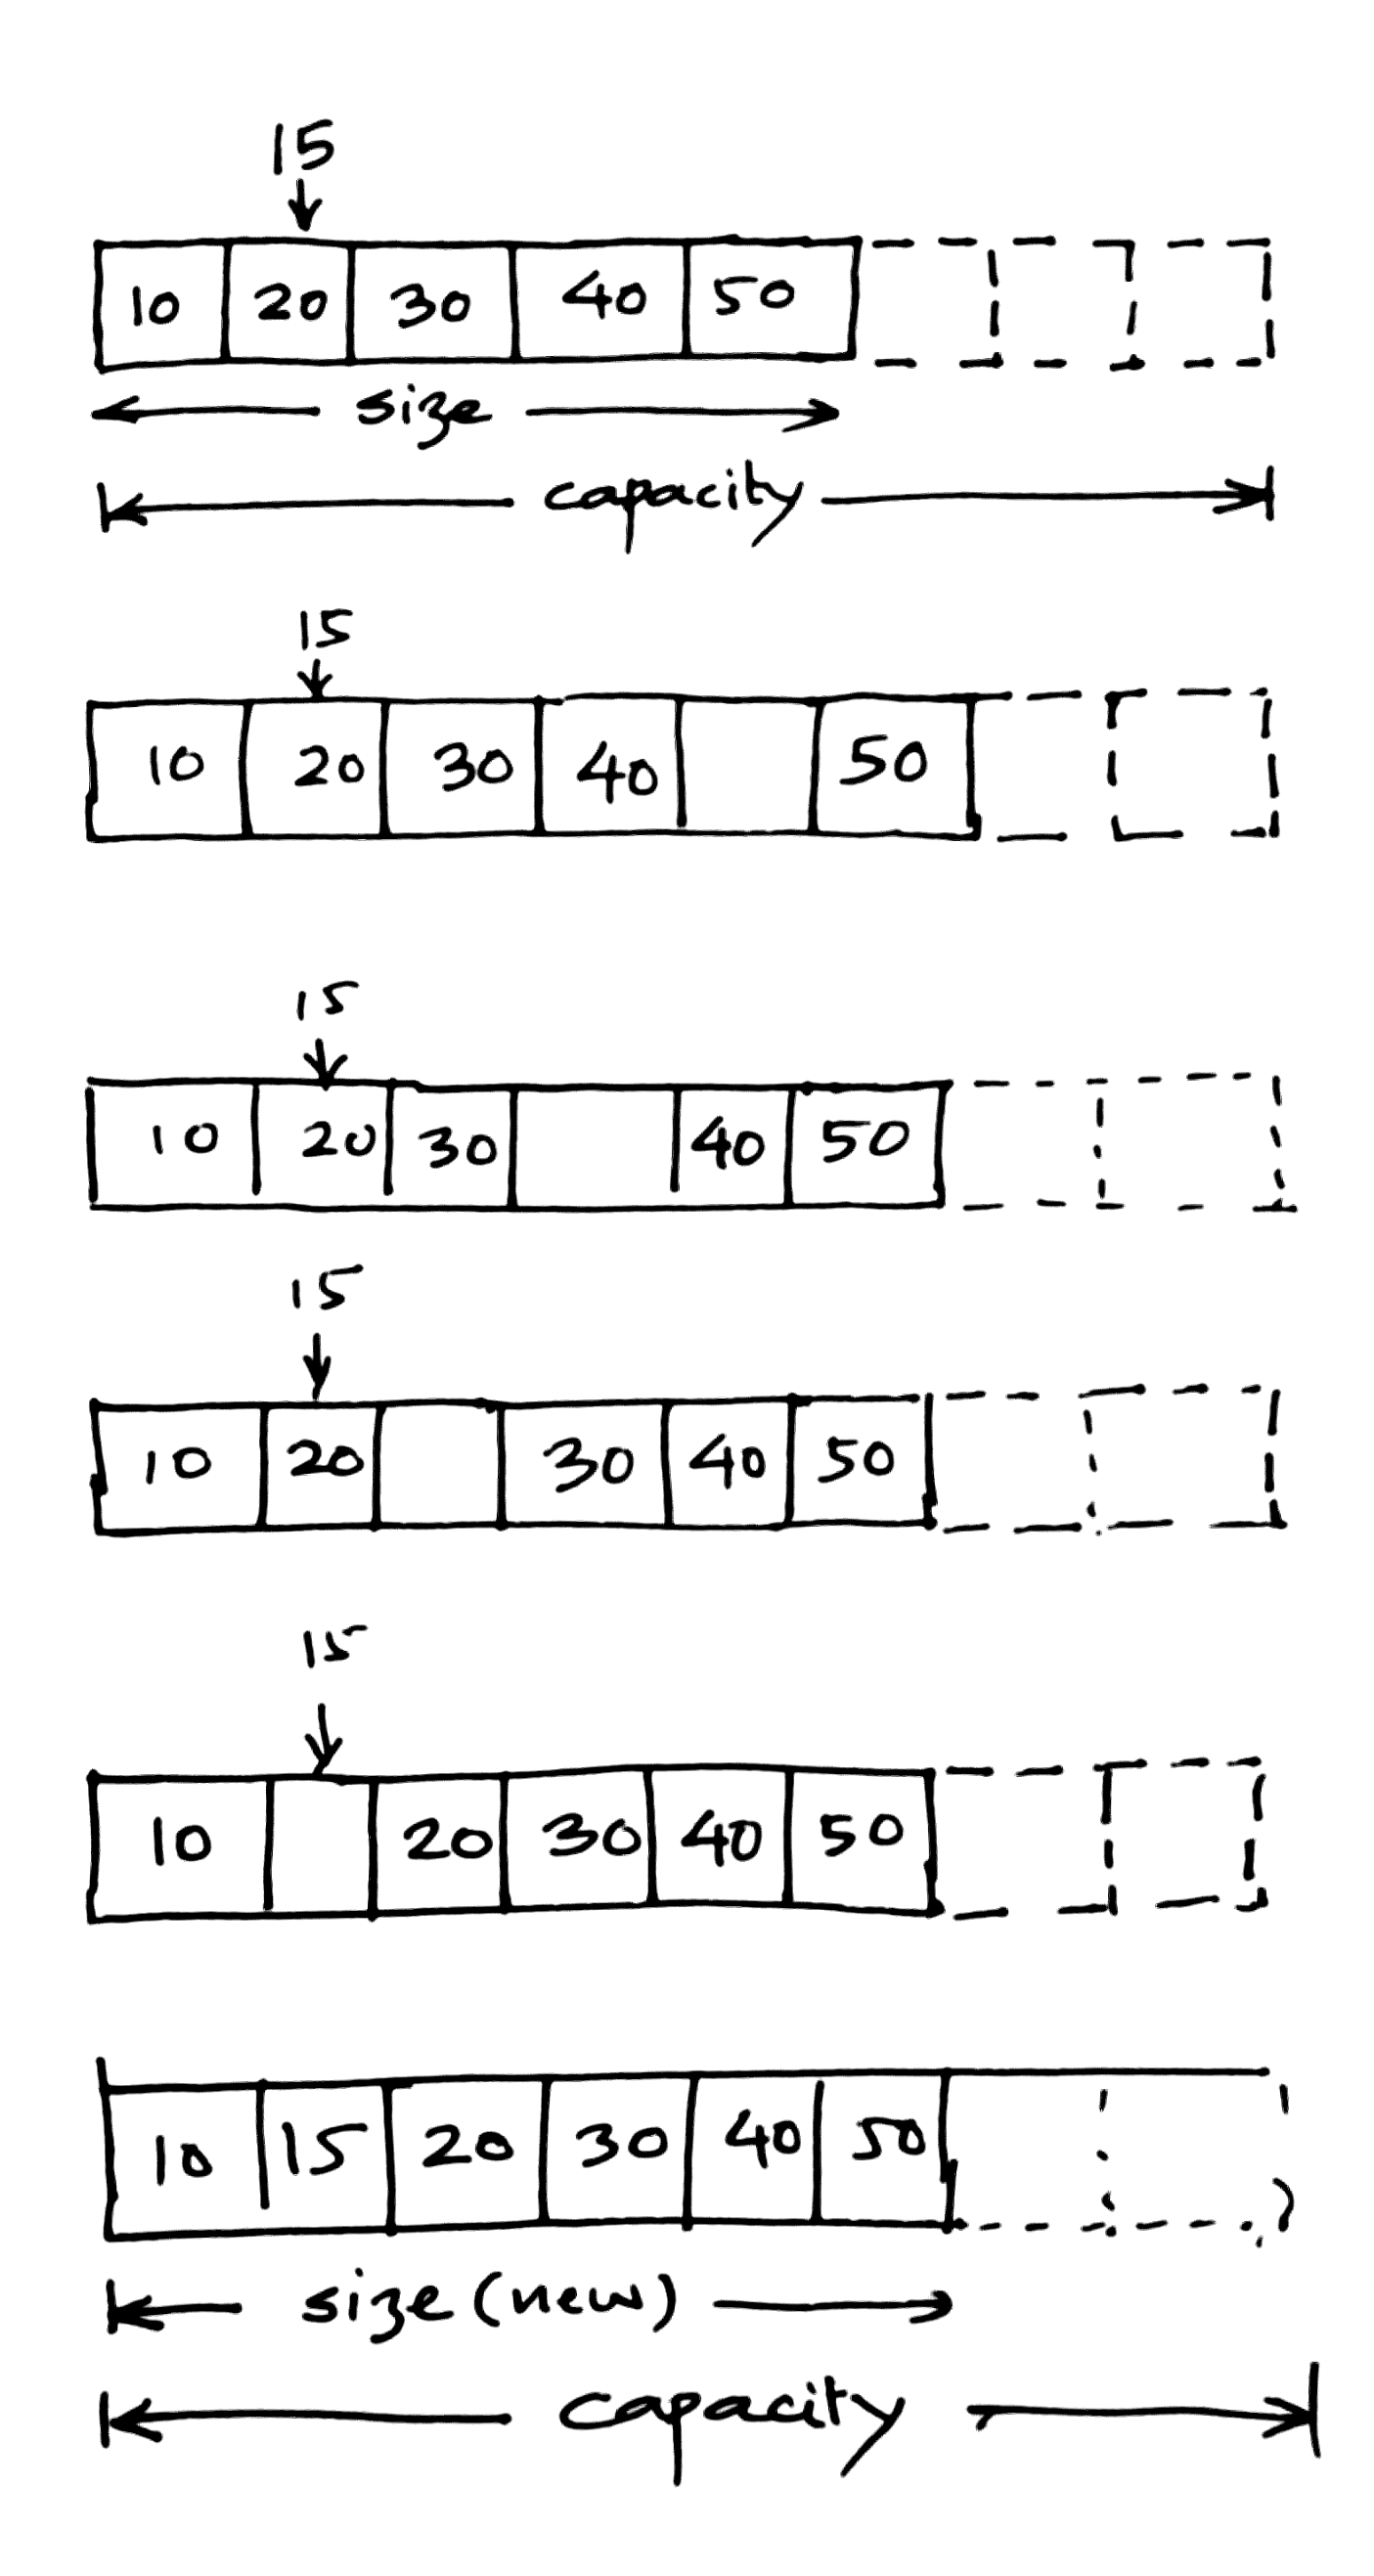 15
10 20 30 40 50
size
capacity
15
10 20 30 40 50
15
10 20 30 40 50
15
10 20 30 40 50
15
10 20 30 40 50
10 15 20 30 40 50
size (new)
capacity